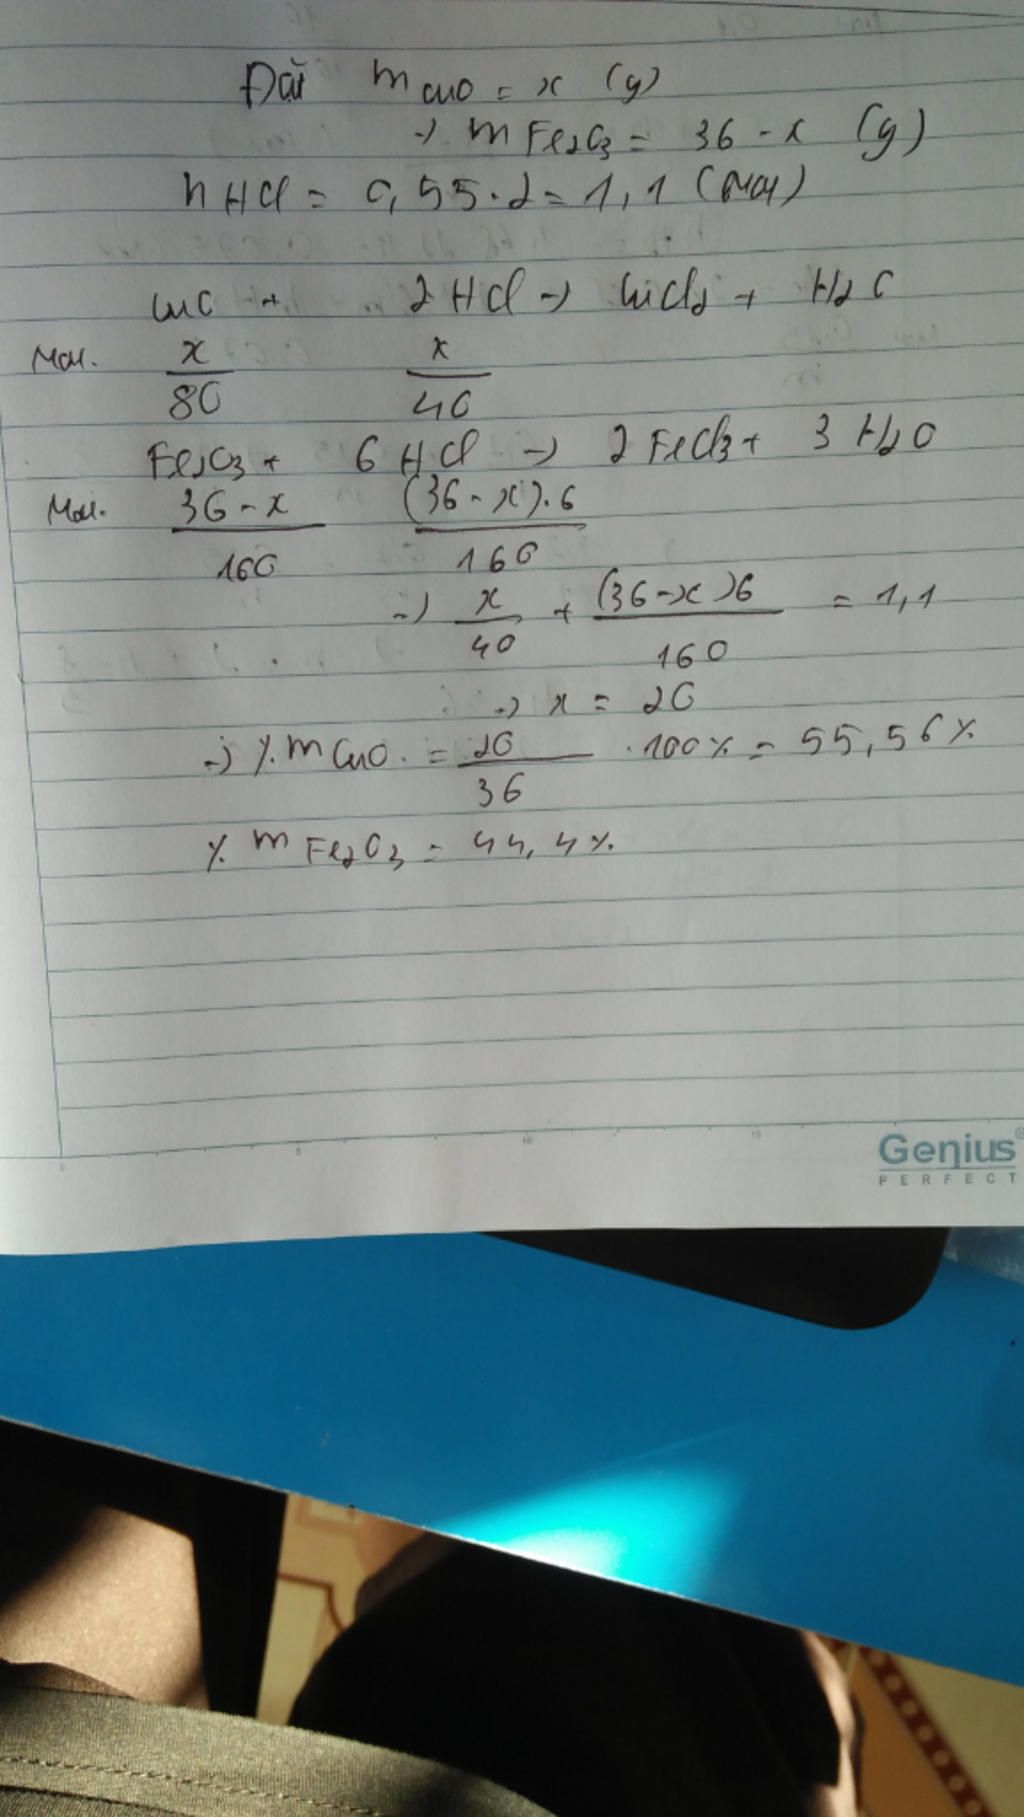 Đặt m CuO = x (g)
→ m Fe2O3 = 36 - x (g)
n HCl = 0,55 . 2 = 1,1 (Mol)
CuO + 2 HCl → CuCl2 + H2O
Mol. x/80 x/40
Fe2O3 + 6 HCl → 2 FeCl3 + 3 H2O
Mol. 36 - x/160 (36 - x).6/160
→ x/40 + (36 - x)6/160 = 1,1
→ x = 20
→ % m CuO. = 20/36 . 100% = 55,56%
% m Fe2O3 = 44,4%.
0 5 10 15
Genius
PERFECT